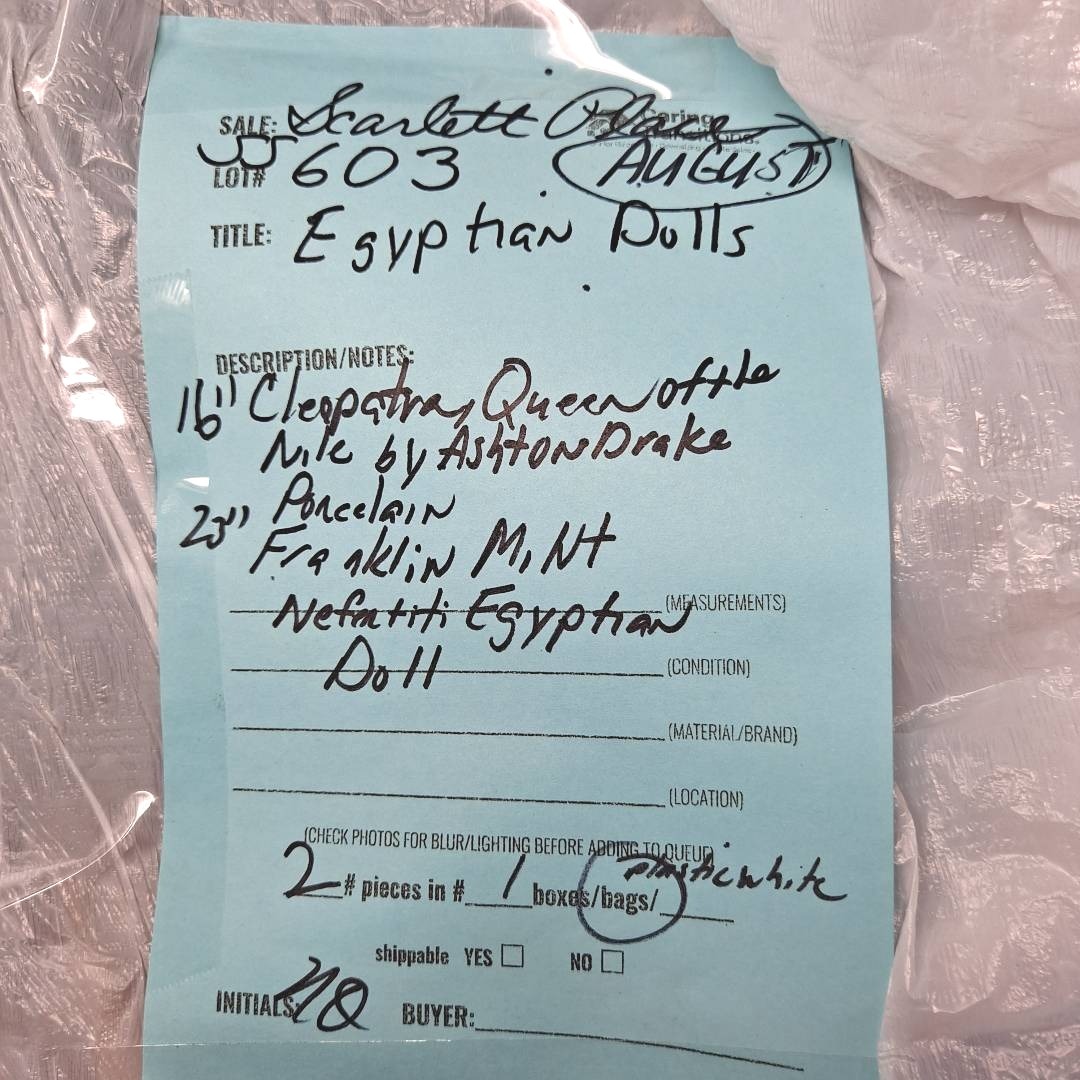 SALE: Scarlett Place
Caring Transitions
JJ
LOT# 603 AUGUST
TITLE: Egyptian Dolls
DESCRIPTION/NOTES:
16" Cleopatra, Queen of the
Nile by Ashton Drake
Porcelain
23" Franklin Mint
Nefertiti Egyptian (MEASUREMENTS)
Doll (CONDITION)
(MATERIAL/BRAND)
(LOCATION)
(CHECK PHOTOS FOR BLUR/LIGHTING BEFORE ADDING TO QUEUE)
plastic white
2 # pieces in # 1 boxes/bags/
shippable YES NO
INITIALS: BUYER: